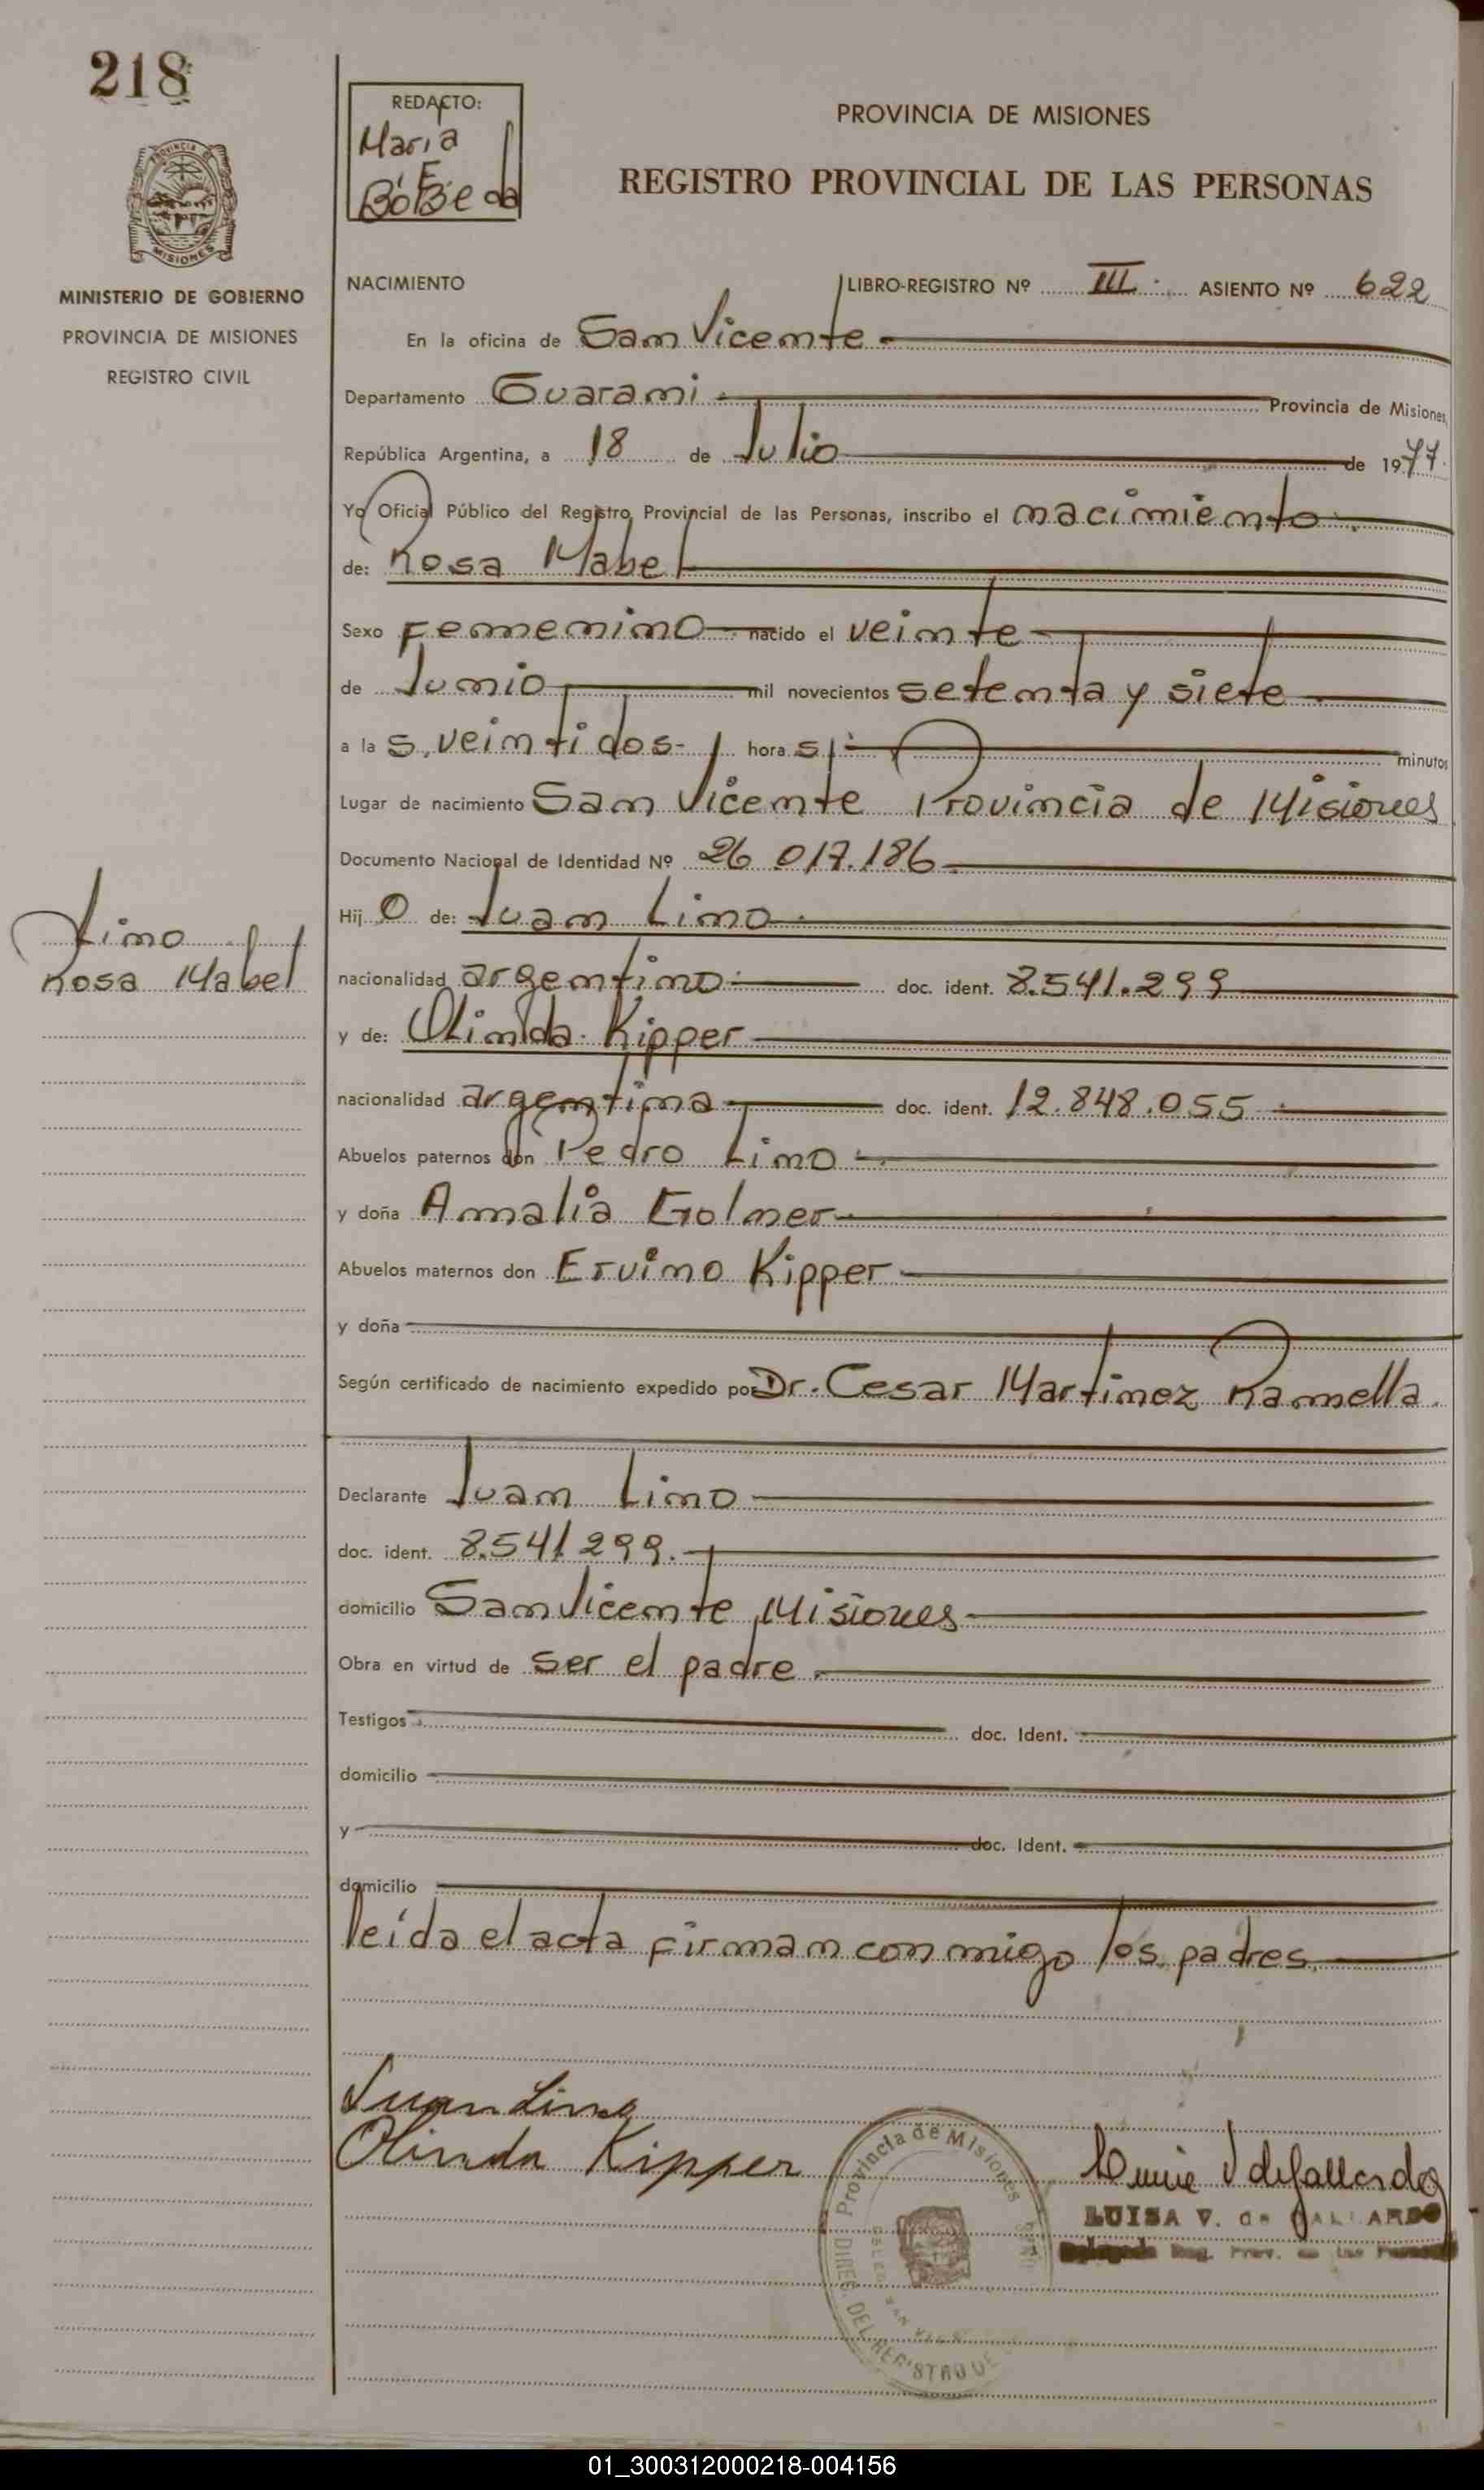 218
REDACTO:
Maria
E.
Bóbeda
PROVINCIA DE MISIONES
REGISTRO PROVINCIAL DE LAS PERSONAS
PROVINCIA DE
MISIONES
MINISTERIO DE GOBIERNO
PROVINCIA DE MISIONES
REGISTRO CIVIL
NACIMIENTO LIBRO-REGISTRO Nº III ASIENTO Nº 622
En la oficina de San Vicente
Departamento Guarani Provincia de Misiones,
República Argentina, a 18 de Julio de 1977.
Yo Oficial Público del Registro Provincial de las Personas, inscribo el nacimiento
de: Rosa Mabel
Sexo Femenino nacido el veinte
de Junio mil novecientos setenta y siete
a las, veintidos- horas minutos
Lugar de nacimiento San Vicente Provincia de Misiones
Documento Nacional de Identidad Nº 26 017.186
Hijo de: Juan Lino
Lino
Rosa Mabel
nacionalidad argentino doc. ident. 8.541.299
y de: Olinda Kipper
nacionalidad argentina doc. ident. 12.848.055
Abuelos paternos don Pedro Lino
y doña Amalia Golner
Abuelos maternos don Ervino Kipper
y doña
Según certificado de nacimiento expedido por Dr. Cesar Martinez Ramella.
Declarante Juan Lino
doc. ident. 8.541 299.
domicilio San Vicente, Misiones
Obra en virtud de ser el padre
Testigos doc. Ident.
domicilio
y doc. Ident.
domicilio
leída el acta firman conmigo los padres
Juan Lino
Olinda Kipper
Provincia de Misiones
DIREC. DEL REGISTRO DE
LUISA V. de GALLARDO
Delegada Reg. Prov. de las Personas
01_300312000218-004156